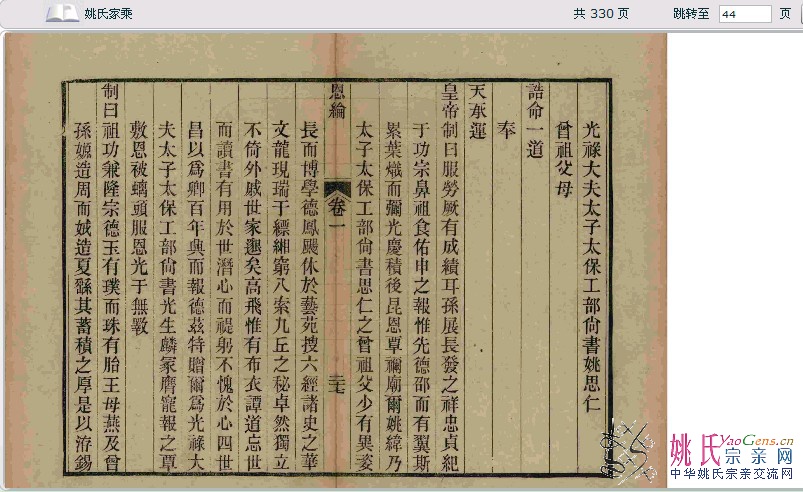 姚氏家乘
共 330 页
跳转至 44 页
光祿大夫太子太保工部尙書姚思仁
曾祖父母
誥命一道
奉
天承運
皇帝制曰服勞厥有成績耳孫展長發之祥忠貞紀
于功宗鼻祖食佑申之報惟先德邵而有翼斯
累葉熾而彌光慶積後昆恩覃禰廟爾姚緯乃
太子太保工部尙書思仁之曾祖父少有異姿
恩綸
卷一
三七
長而博學德鳳颺休於藝苑搜六經諸史之華
文龍現瑞于縹緗窮八索九丘之秘卓然獨立
不倚外戚世家邈矣高飛惟有布衣譚道忘世
而讀書有用於世潛心而禔躬不愧於心四世
昌以爲卿百年興而報德茲特贈爾爲光祿大
夫太子太保工部尙書光生麟冢膺寵報之覃
敷恩被螭頭服恩光于無斁
制曰祖功兼隆宗德玉有璞而珠有胎王母燕及曾
孫嫄造周而娀造夏繇其蓄積之厚是以洊錫
姚氏YaoGens.cn
宗亲网
中华姚氏宗亲交流网